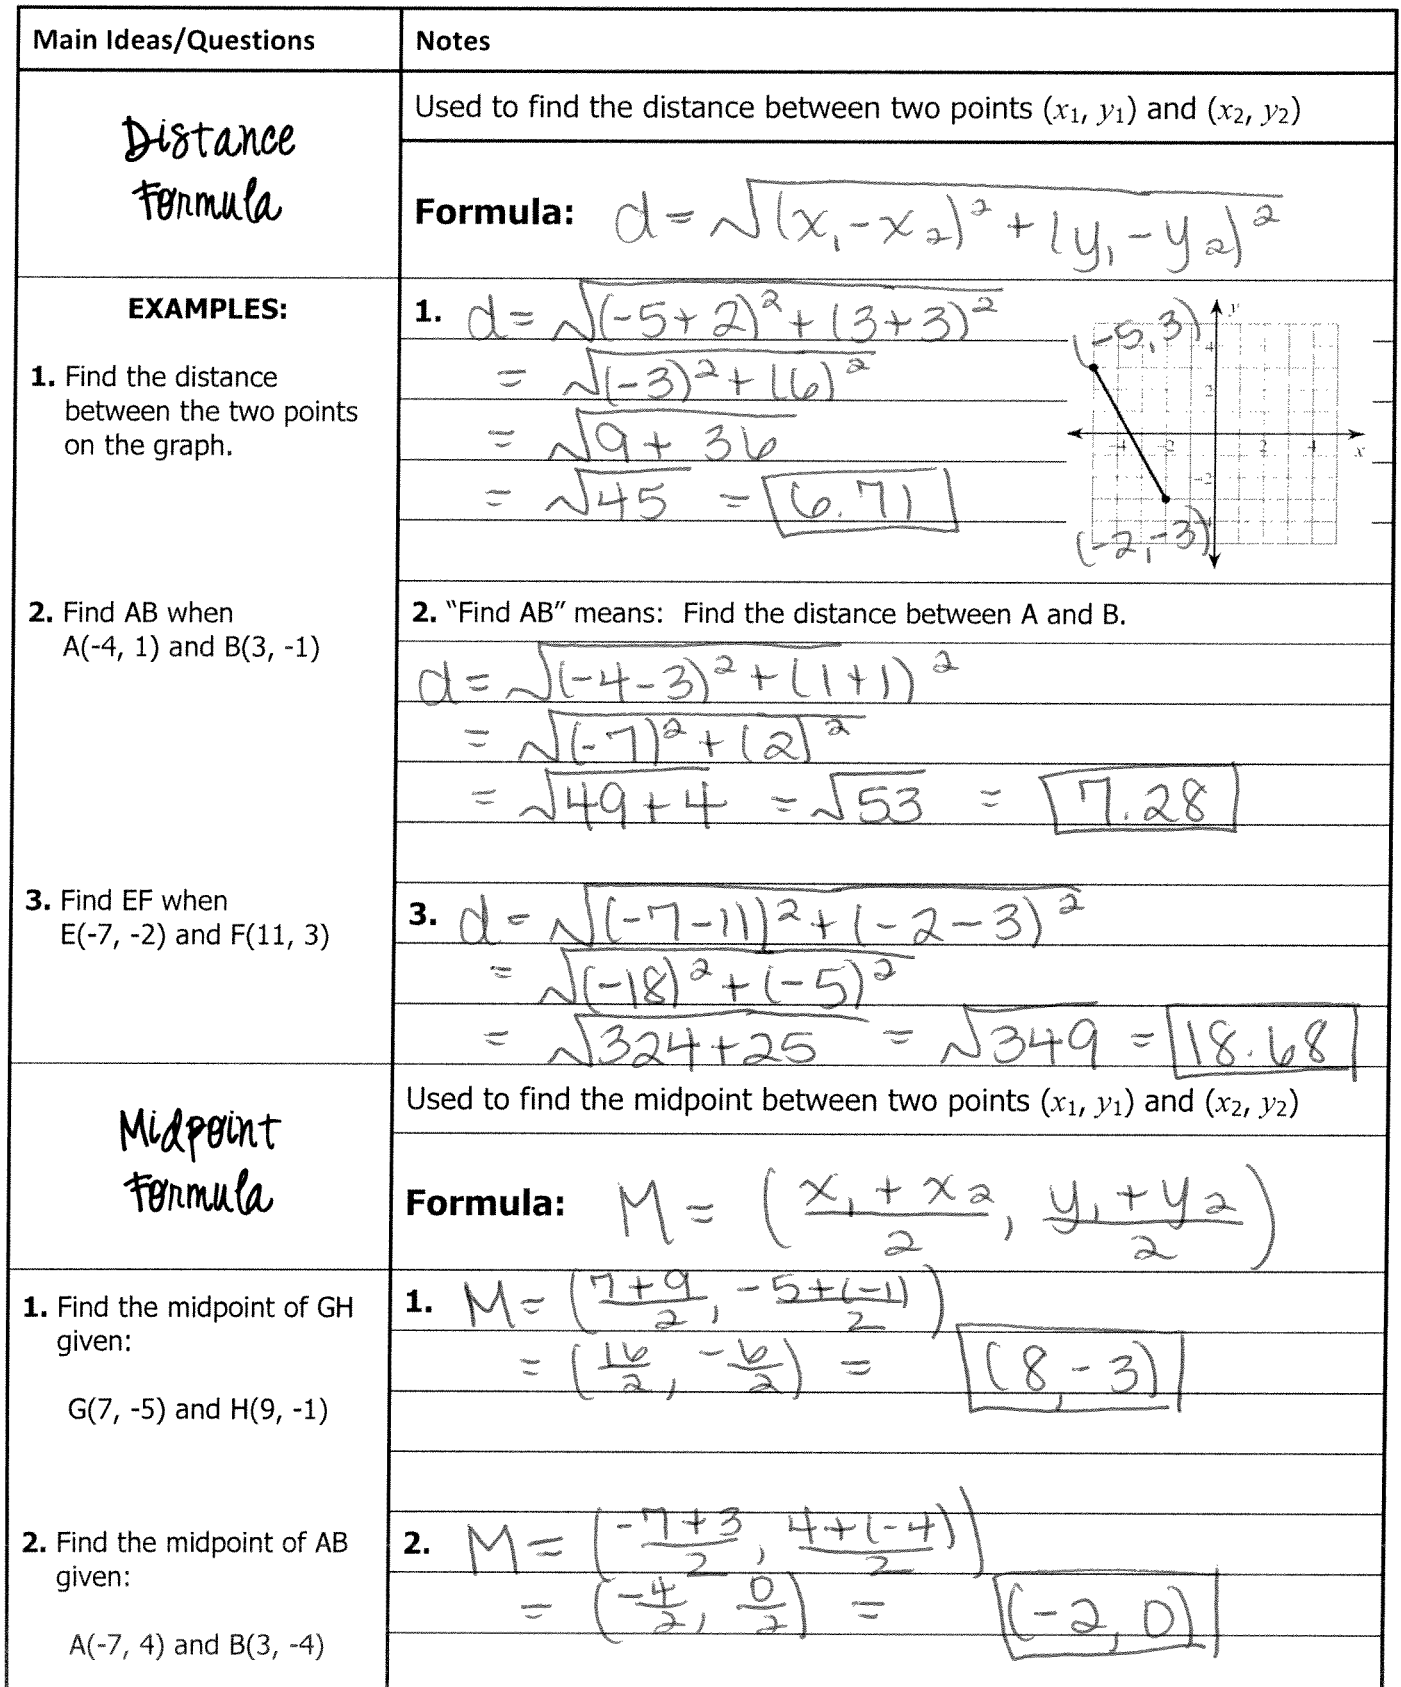 Main Ideas/Questions
Notes
Distance
Formula
Used to find the distance between two points (x₁, y₁) and (x₂, y₂)
Formula: d = √(x₁ - x₂)² + (y₁ - y₂)²
EXAMPLES:
1. Find the distance
between the two points
on the graph.
1. d = √(-5+2)² + (3+3)²
= √(-3)² + (6)²
= √9 + 36
= √45 = 6.71
y
(-5, 3)
4
2
-4 -2 2 4 x
-2
-4
(-2, -3)
2. Find AB when
A(-4, 1) and B(3, -1)
2. "Find AB" means: Find the distance between A and B.
d = √(-4-3)² + (1+1)²
= √(-7)² + (2)²
= √49 + 4 = √53 = 7.28
3. Find EF when
E(-7, -2) and F(11, 3)
3. d = √(-7-11)² + (-2-3)²
= √(-18)² + (-5)²
= √324 + 25 = √349 = 18.68
Midpoint
Formula
Used to find the midpoint between two points (x₁, y₁) and (x₂, y₂)
Formula: M = ( x₁ + x₂ / 2 , y₁ + y₂ / 2 )
1. Find the midpoint of GH
given:
G(7, -5) and H(9, -1)
1. M = ( 7+9 / 2 , -5+(-1) / 2 )
= ( 16/2 , -6/2 ) = (8, -3)
2. Find the midpoint of AB
given:
A(-7, 4) and B(3, -4)
2. M = ( -7+3 / 2 , 4+(-4) / 2 )
= ( -4/2 , 0/2 ) = (-2, 0)